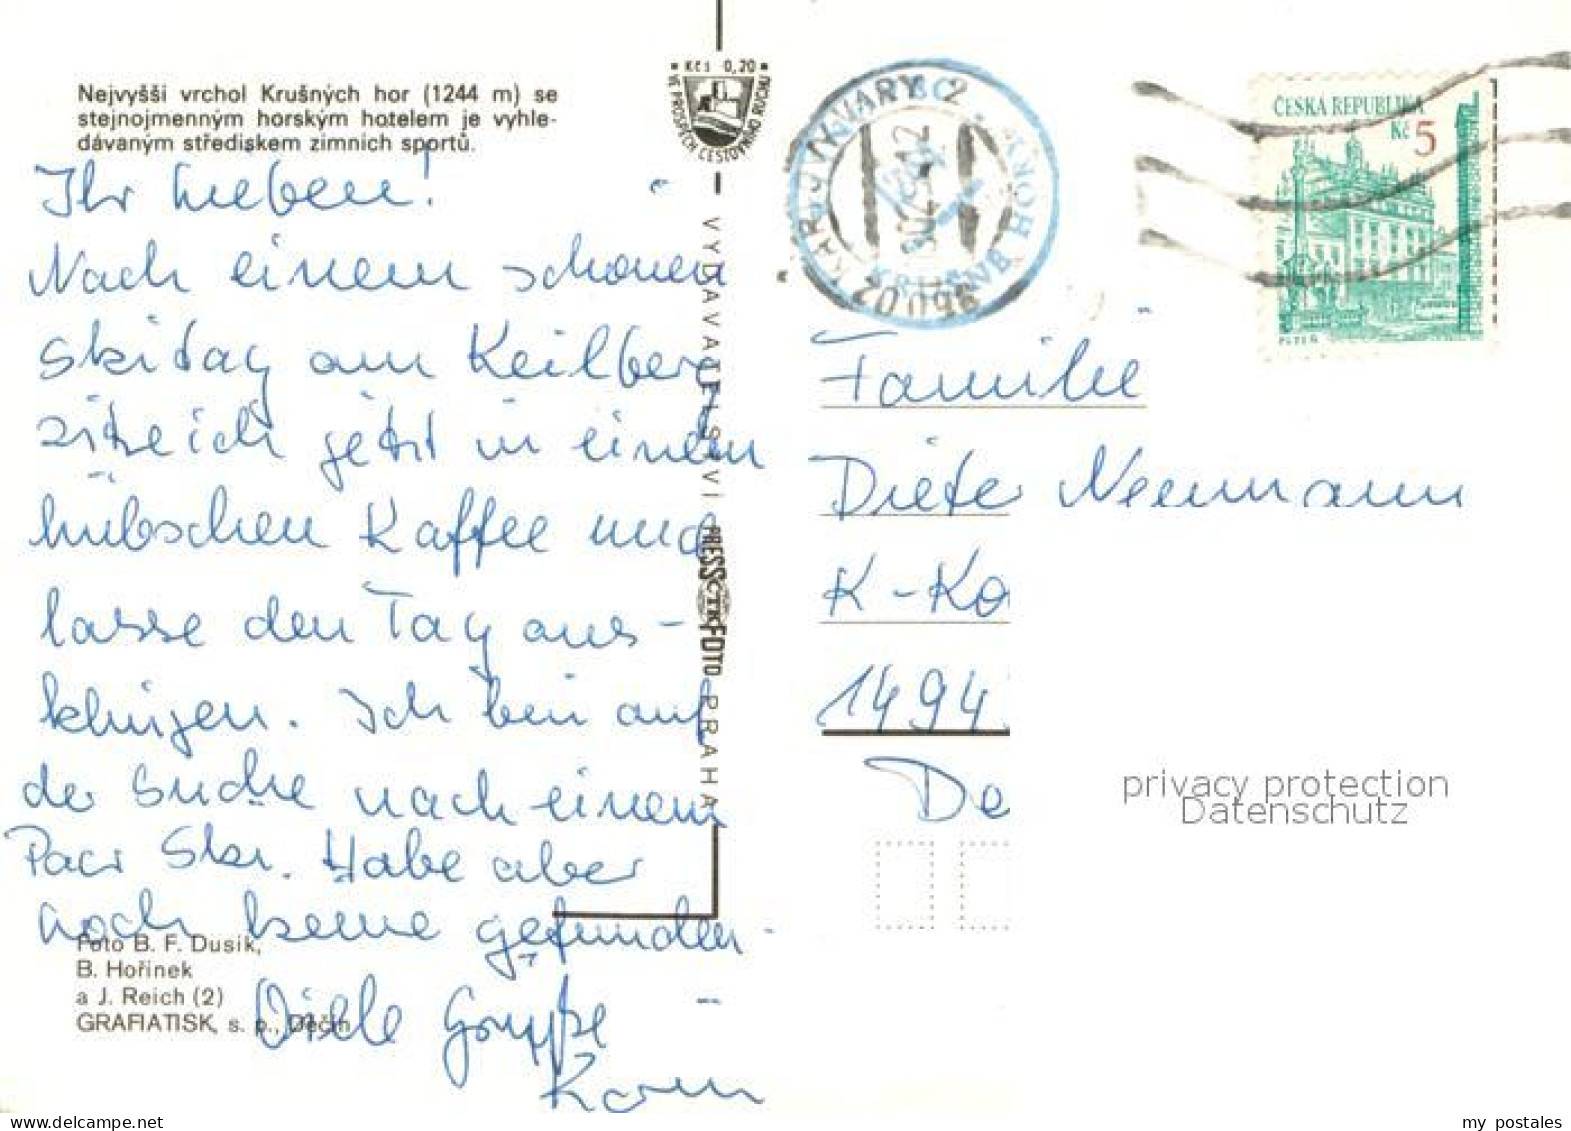 Nejvyšši vrchol Krušných hor (1244 m) se
stejnojmenným horským hotelem je vyhle-
dávaným střediskem zimních sportů.
Ihr Lieben!
Nach einem schönen
Skitag am Keilberg
sitze ich jetzt in einem
hübschen Kaffee und
lasse den Tag aus-
klingen. Ich bin auf
der Suche nach einem
Paar Ski. Habe aber
noch keine gefunden.
Viele Grüße
Karin
Foto B. F. Dusík,
B. Hořínek
a J. Reich (2)
GRAFIATISK, s. p., Děčín
Kčs 0,20
VE PROSPĚCH CESTOVNÍHO RUCHU
VYDAVATELSTVÍ PRESSFOTO PRAHA
KARLOVY VARY 2
360 02
KRUŠNÉ HORY
ČESKÁ REPUBLIKA
Kč 5
PLZEŇ
Familie
Dieter Neumann
K-Ko
1494
De
privacy protection
Datenschutz
www.delcampe.net
my_postales